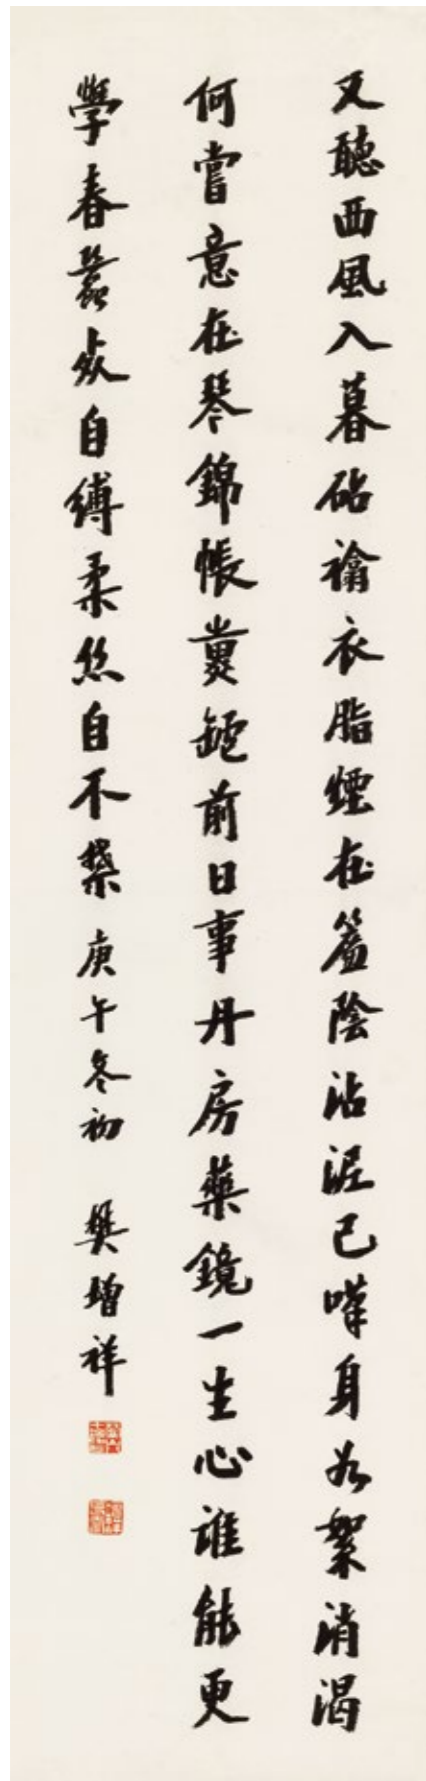 又聽西風入暮砧褕衣脂煙在陰沾泥已嘆身如絮消渴
何嘗意在琴錦帳薰罏前日事丹房藥鏡一生心誰能更
學春蠶自縛柔絲自不禁庚午冬初 樊增祥